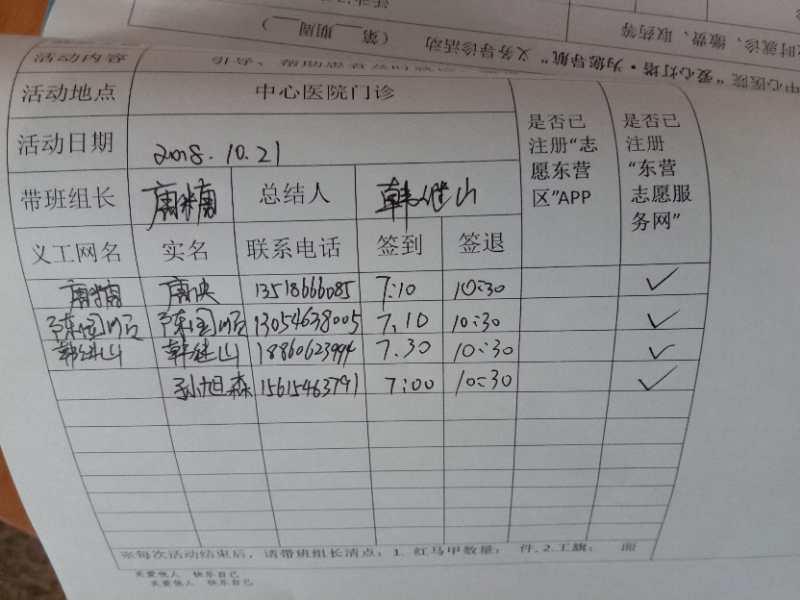 心医院“爱心灯塔·为您导航”义务导诊活动 （第 期周 ）
时就诊、缴费、取药等
活动内容
活动地点 中心医院门诊 是否已注册“志愿东营区”APP 是否已注册“东营志愿服务网”
活动日期 2018.10.21
带班组长 总结人 韩继山
义工网名 实名 联系电话 签到 签退
13518666085 7:10 10:30 ✓
陈国明 陈国明 13054638005 7.10 10:30 ✓
韩继山 韩继山 18860623994 7.30 10:30 ✓
孙旭森 15615463791 7:00 10:30 ✓
※每次活动结束后，请带班组长清点：1. 红马甲数量： 件.2.工旗： 面
关爱他人 快乐自己
关爱他人 快乐自己